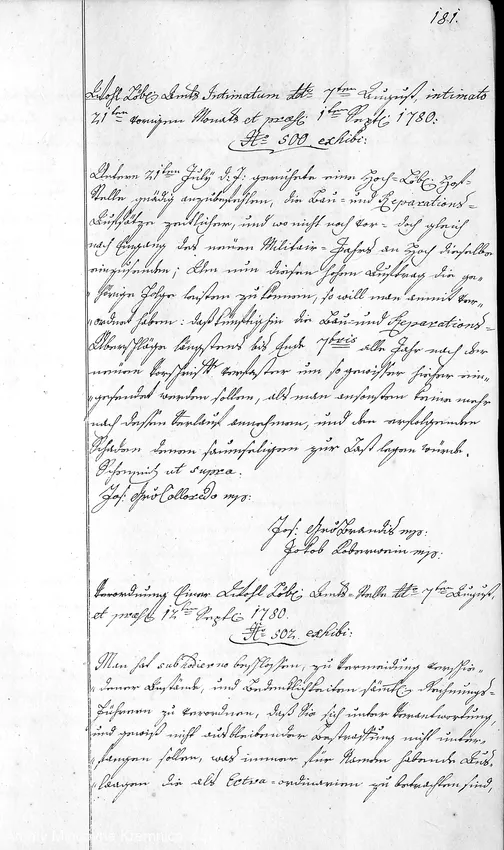 181.
Wohl Löbl. Amts Intimatum ddto 7ten August, intimato
21ten vorigen Monats et praes. 1ten Septb. 1780.
No 500 exhibi:
Untern 21ten July d: J: geruhete eine Hoch-Löbl. Hof-
Stelle gnädig anzubefehlen, die Bau- und Reparations-
Aufsätze zeitlicher, und wo nicht noch vor- doch gleich
nach Eingang des neuen Militair-Jahrs an Hoch dieselbe
einzusenden; Um nun diesem hohen Auftrag die ge-
hörige Folge leisten zu können, so will man anmit ver-
ordnet haben: daß künftighin die Bau- und Reparations-
Überschläge längstens bis Ende 7bris alle Jahr nach der
neuen Vorschrift verfaster um so gewisser hieher ein-
gesendet werden sollen, als man ansonsten keine mehr
nach dessen Verlauf annehmen, und den erfolgenden
Schaden denen saumseligen zur Last legen würde.
Schemnitz ut supra.
Jos: Gr. Colloredo mp:
Jos: Gr. Brandis mp:
Jakob Loberwein mp:
Verordnung Einer Wohl Löbl. Amts-Stelle ddto 7ten August,
et praes. 12ten Septb. 1780.
No 502. exhibi:
Man hat sub hodierno beschlossen, zu Vermeidung verschie-
dener Anstände, und Bedenklichkeiten sämtl. Rechnungs-
führern zu verordnen, daß Sie sich unter Verantwortung,
und gewiß nicht ausbleibender Bestraffung nicht unter-
fangen sollen, was immer für Namen habende Aus-
laagen die als Extra-ordinarien zu betrachten sind,